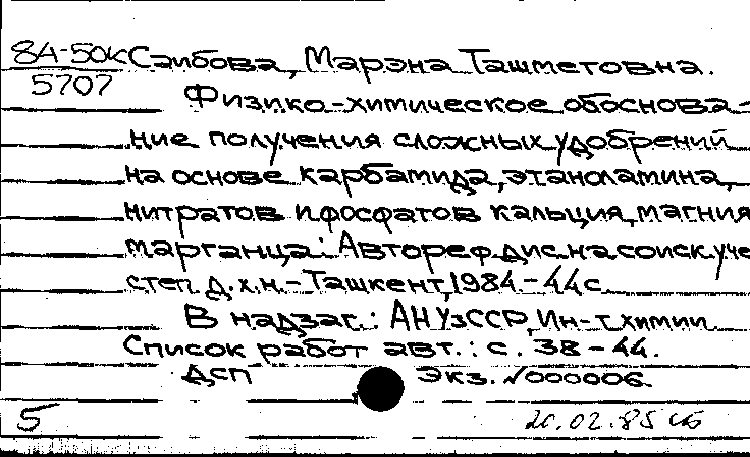 8А-50К Саибова, Марэна Ташметовна.
5707
Физико-химическое обоснова-
ние получения сложных удобрений
на основе карбамида, этаноламина,
нитратов и фосфатов кальция, магния
марганца: Автореф. дис. на соиск. уче
степ. д.х.н. - Ташкент, 1984. - 44 с.
В надзаг.: АН УзССР, Ин-т химии
Список работ авт.: с. 38-44.
ДСП Экз. №000006.
5 20.02.85 сб